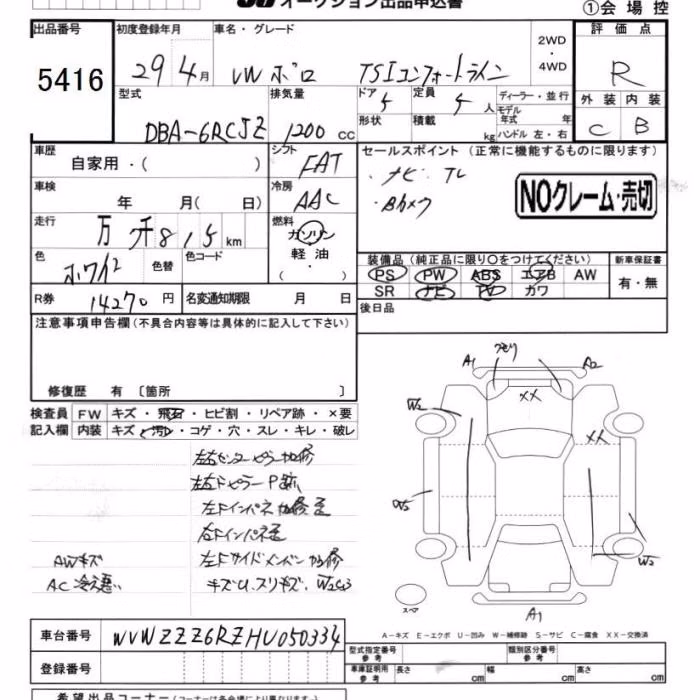 オークション出品申込書
①会場控
出品番号 初度登録年月 車名・グレード 2WD・4WD 評価点
5416 29 4月 VWポロ TSIコンフォートライン R
型式 排気量 ドア 定員 ディーラー・並行
外装 内装
DBA-6RCJZ 1200 cc 5 5人 モデル年式 年
C B
形状 積載 kg ハンドル 左・右
車歴 自家用・( )
シフト FAT
セールスポイント (正常に機能するものに限ります)
・ナビ TV
・Bカメラ
NOクレーム・売切
車検 年 月( 日)
冷房 AAC
走行 万 千815km
燃料 ガソリン・軽油・( )
色 ホワイト 色替 色コード
装備品(純正品に限り○をつけてください) 新車保証書
PS PW ABS エアB AW 有・無
SR ナビ TV カワ
R券 14270円 名変通知期限 月 日
後日品
注意事項申告欄(不具合内容等は具体的に記入して下さい)
修復歴 有 〔箇所 〕
検査員記入欄 FW キズ・飛石・ヒビ割・リペア跡・×要
内装 キズ・汚れ・コゲ・穴・スレ・キレ・破レ
左右センターピラー加修
左右Fピラー P跡
左Fインパネ加修歪
右Fインパネ歪
AWキズ 左Fサイドメンバー加修
AC冷え悪い キズU、スリキズ、W2C3
A1 クモリ A2
XX
W2
XX
W5
W2
スペア
A1
A-キズ E-エクボ U-凹み W-補修跡 S-サビ C-腐食 XX-交換済
車台番号 WVWZZZ6RZHU050334
型式指定番号 参考 類別区分番号 参考
登録番号
車庫証明用 参考 長さ cm 幅 cm 高さ cm
希望出品コーナー(コーナーは各会場により異なります)